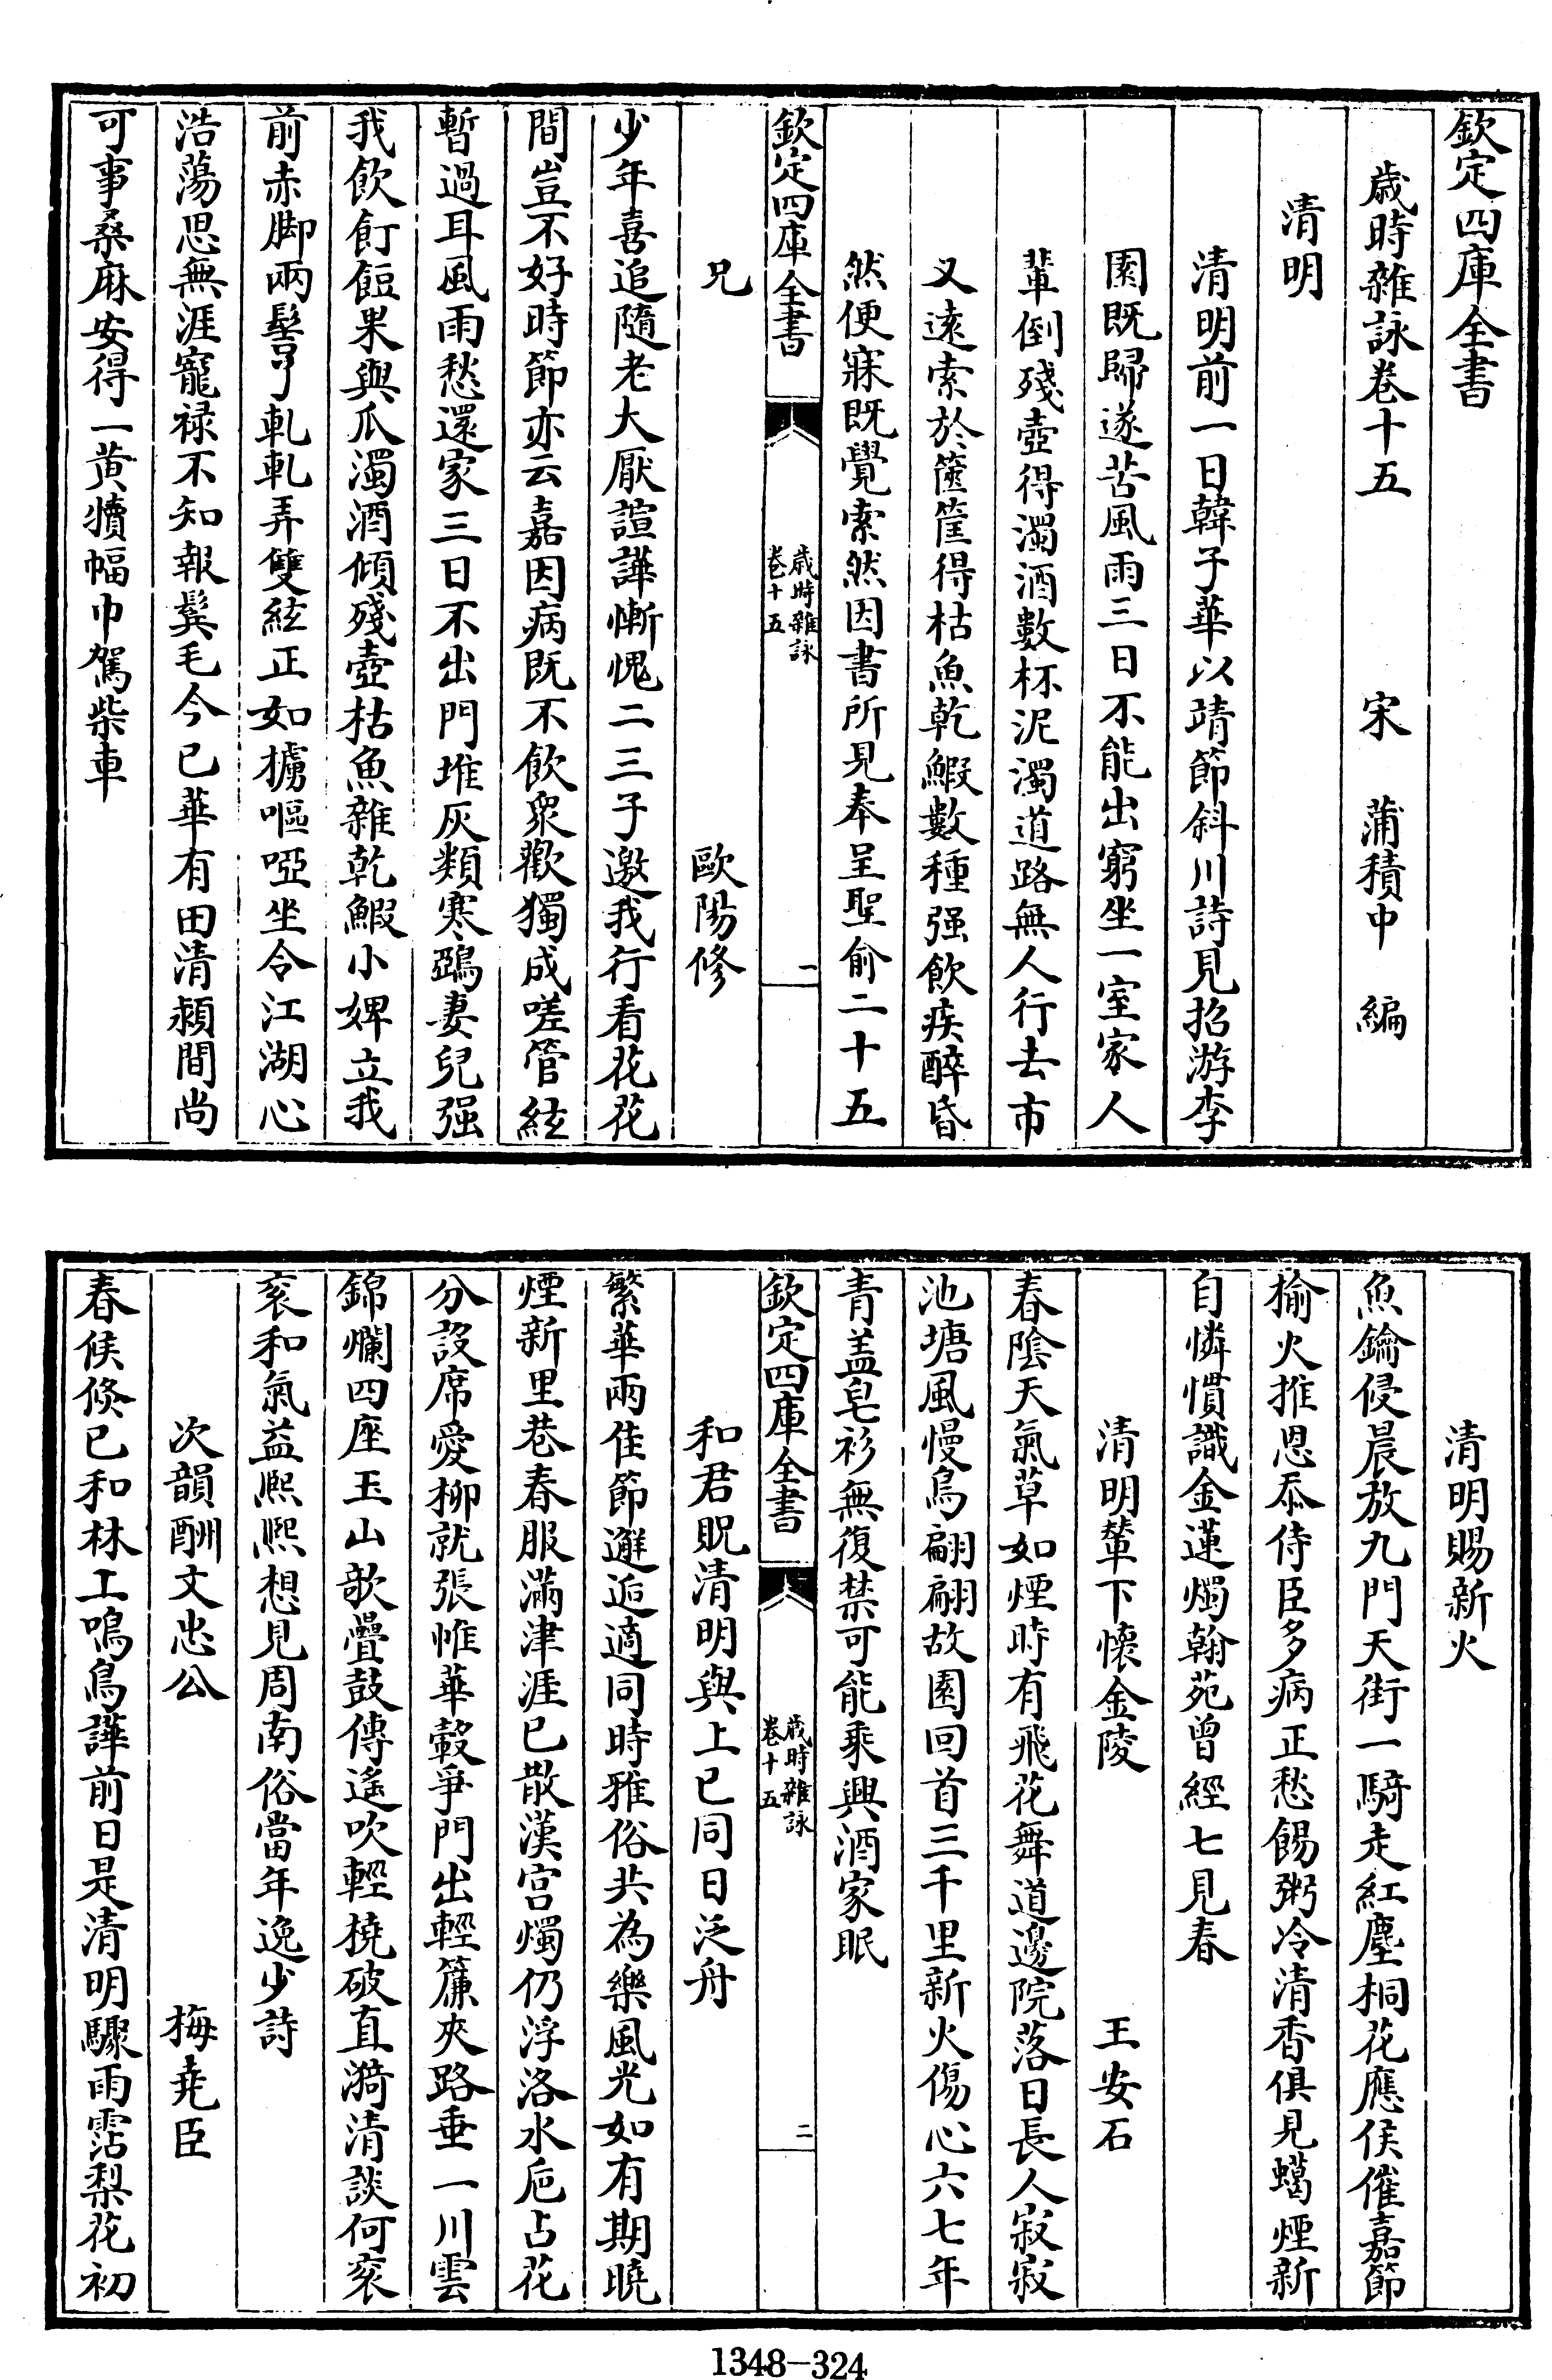 欽定四庫全書
歲時雜詠卷十五　宋　蒲積中　編
清明
清明前一日韓子華以靖節斜川詩見招游李
園既歸遂苦風雨三日不能出窮坐一室家人
輩倒殘壺得濁酒數杯泥濁道路無人行去市
又遠索於篋筐得枯魚乾鰕數種强飲疾醉昏
然便寐既覺索然因書所見奉呈聖俞二十五
欽定四庫全書
歲時雜詠
卷十五
一
兄　歐陽修
少年喜追隨老大厭諠譁慚愧二三子邀我行看花花
間豈不好時節亦云嘉因病既不飲衆歡獨成嗟管絃
暫過耳風雨愁還家三日不出門堆灰類寒鵶妻兒强
我飲飣餖果與瓜濁酒傾殘壺枯魚雜乾鰕小婢立我
前赤脚兩髻丫軋軋弄雙絃正如櫓嘔啞坐令江湖心
浩蕩思無涯寵禄不知報鬂毛今已華有田清潁間尚
可事桑麻安得一黄犢幅巾駕柴車
清明賜新火
魚鑰侵晨放九門天街一騎走紅塵桐花應候催嘉節
榆火推恩忝侍臣多病正愁餳粥冷清香俱見蠟煙新
自憐慣識金蓮燭翰苑曾經七見春
清明輦下懷金陵　王安石
春陰天氣草如煙時有飛花舞道邊院落日長人寂寂
池塘風慢鳥翩翩故園回首三千里新火傷心六七年
青盖皂衫無復禁可能乘興酒家眠
欽定四庫全書
歲時雜詠
卷十五
二
和君貺清明與上已同日泛舟
繁華兩佳節邂逅適同時雅俗共為樂風光如有期曉
煙新里巷春服滿津涯已散漢宫燭仍浮洛水巵占花
分設席愛柳就張帷華轂爭門出輕簾夾路垂一川雲
錦爛四座玉山欹疊鼓傳遙吹輕橈破直漪清談何衮
衮和氣益熙熙想見周南俗當年逸少詩
次韻酬文忠公　梅堯臣
春候倐已和林上鳴鳥譁前日是清明驟雨霑梨花初
1348-324